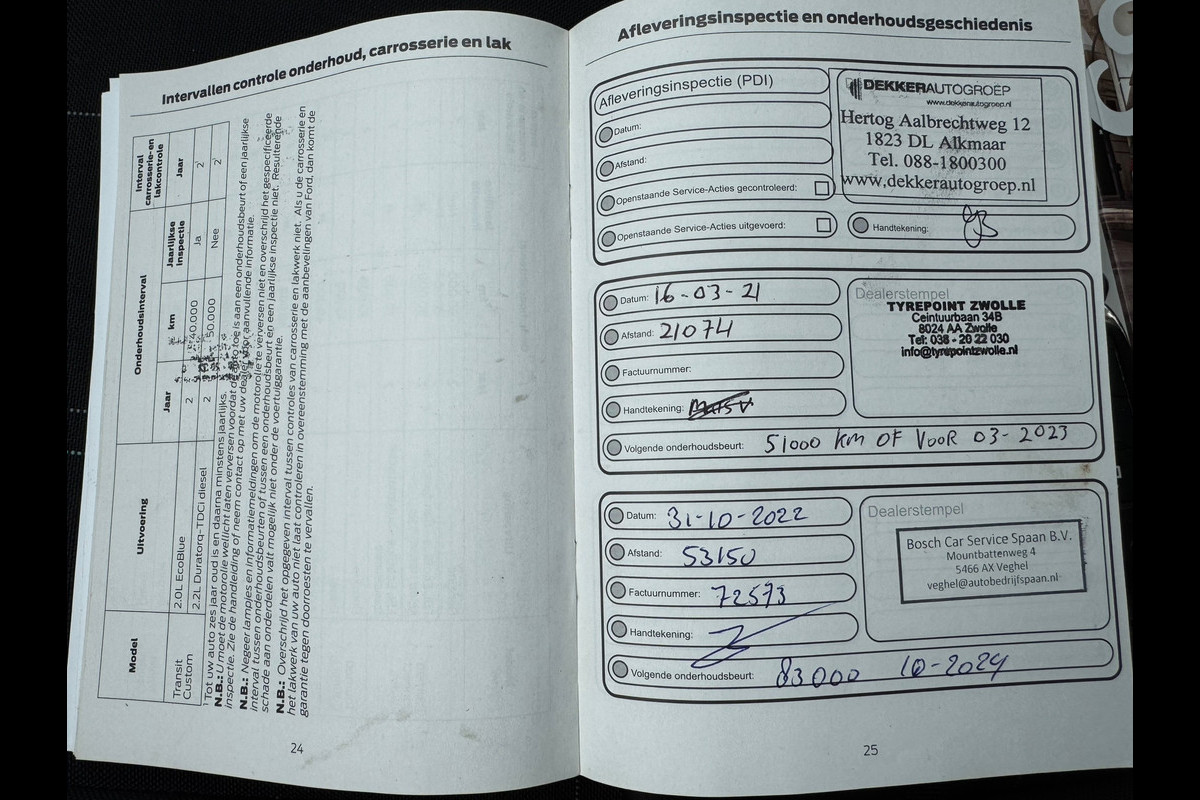 Intervallen controle onderhoud, carrosserie en lak
Model
Uitvoering
Onderhoudsinterval
Interval carrosserie-en lakcontrole
Jaar
km
Jaarlijkse inspectie
Jaar
Transit Custom
2.0L EcoBlue
2
40.000
Ja
2
2.2L Duratorq-TDCi diesel
2
50.000
Nee
2
¹ Tot uw auto zes jaar oud is en daarna minstens jaarlijks.
N.B.: U moet de motorolie wellicht laten verversen voordat de auto toe is aan een onderhoudsbeurt of een jaarlijkse
inspectie. Zie de handleiding of neem contact op met uw dealer voor aanvullende informatie.
N.B.: Negeer lampjes en informatiemeldingen om de motorolie te verversen niet en overschrijd het gespecificeerde
interval tussen onderhoudsbeurten of tussen een onderhoudsbeurt en een jaarlijkse inspectie niet. Resulterende
schade aan onderdelen valt mogelijk niet onder de voertuiggarantie.
N.B.: Overschrijd het opgegeven interval tussen controles van carrosserie en lakwerk niet. Als u de carrosserie en
het lakwerk van uw auto niet laat controleren in overeenstemming met de aanbevelingen van Ford, dan komt de
garantie tegen doorroesten te vervallen.
24
Afleveringsinspectie en onderhoudsgeschiedenis
Afleveringsinspectie (PDI)
Datum:
Afstand:
Openstaande Service-Acties gecontroleerd:
Openstaande Service-Acties uitgevoerd:
DEKKERAUTOGROEP
www.dekkerautogroep.nl
Hertog Aalbrechtweg 12
1823 DL Alkmaar
Tel. 088-1800300
www.dekkerautogroep.nl
Handtekening:
Datum: 16-03-21
Afstand: 21074
Factuurnummer:
Handtekening:
Volgende onderhoudsbeurt: 51000 km OF VOOR 03-2023
Dealerstempel
TYREPOINT ZWOLLE
Ceintuurbaan 34B
8024 AA Zwolle
Tel: 038 - 20 22 030
info@tyrepointzwolle.nl
Datum: 31-10-2022
Afstand: 53150
Factuurnummer: 72573
Handtekening:
Volgende onderhoudsbeurt: 83000 10-2024
Dealerstempel
Bosch Car Service Spaan B.V.
Mountbattenweg 4
5466 AX Veghel
veghel@autobedrijfspaan.nl
25